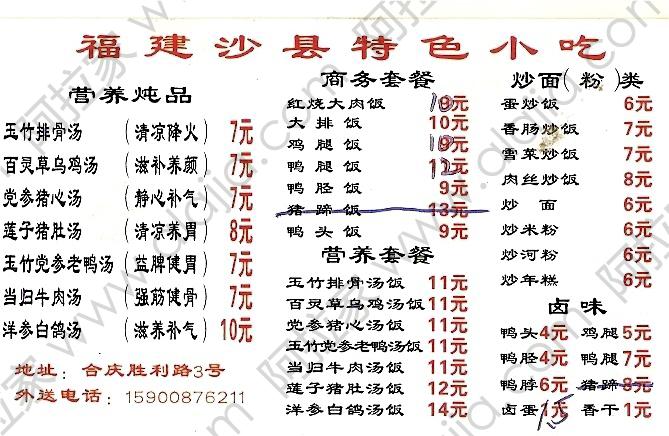 福建沙县特色小吃
营养炖品
玉竹排骨汤 （清凉降火） 7元
百灵草乌鸡汤 （滋补养颜） 7元
党参猪心汤 （静心补气） 7元
莲子猪肚汤 （清凉养胃） 8元
玉竹党参老鸭汤（益脾健胃） 7元
当归牛肉汤 （强筋健骨） 7元
洋参白鸽汤 （滋养补气） 10元
地址：合庆胜利路3号
外送电话：15900876211
商务套餐
红烧大肉饭 10元
大排饭 10元
鸡腿饭 10元
鸭腿饭 12元
鸭胫饭 9元
猪蹄饭 13元
鸭头饭 9元
营养套餐
玉竹排骨汤饭 11元
百灵草乌鸡汤饭 11元
党参猪心汤饭 11元
玉竹党参老鸭汤饭 11元
当归牛肉汤饭 11元
莲子猪肚汤饭 12元
洋参白鸽汤饭 14元
炒面（粉）类
蛋炒饭 6元
香肠炒饭 7元
雪菜炒饭 7元
肉丝炒饭 8元
炒面 6元
炒米粉 6元
炒河粉 6元
炒年糕 6元
卤味
鸭头4元 鸡腿5元
鸭胫4元 鸭腿7元
鸭脖6元 猪蹄8元
卤蛋1元 香干1元
15
阿拉家 www.aldjia.com